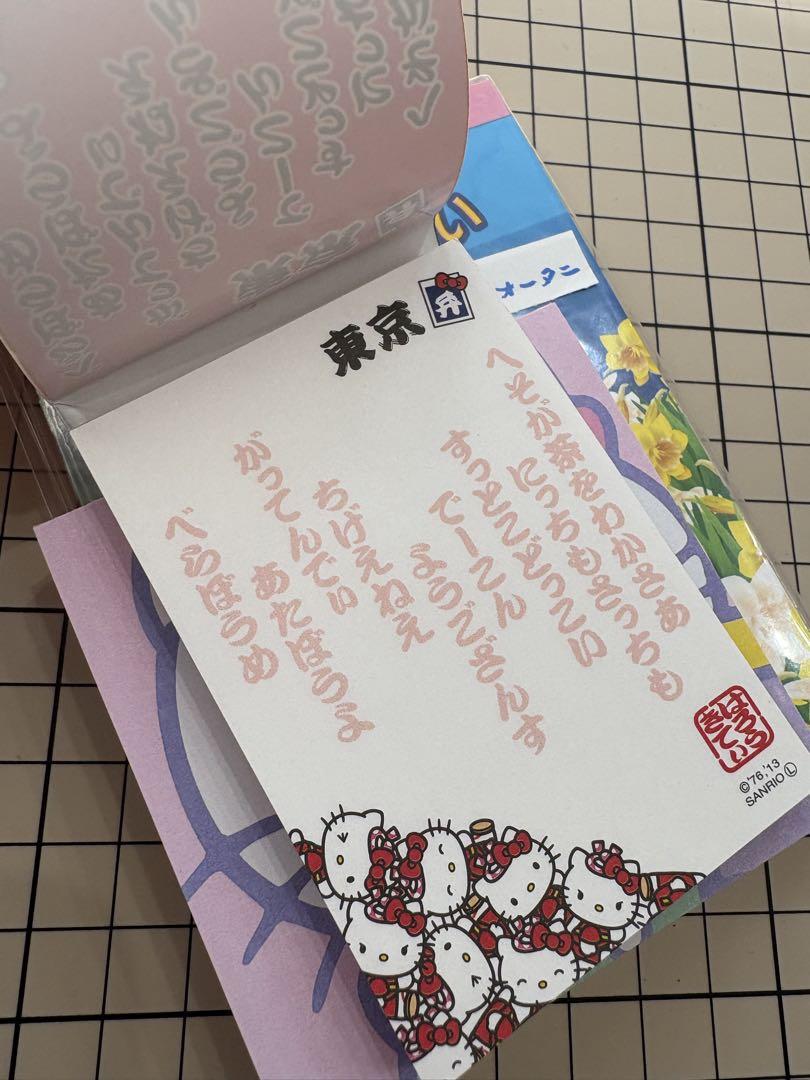 東京弁
へそが茶をわかさあ
にっちもさっちも
すっとこどっこい
でーこん
ようござんす
ちげえねえ
がってんでぃ
あたぼうよ
べらぼうめ
はろう
きてぃ
©'76,'13
SANRIO Ⓛ